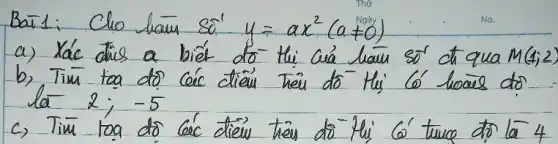 Thứ
Ngày No.
Bài 1: Cho hàm số y = ax² (a ≠ 0)
a) Xác định a biết đồ thị của hàm số đi qua M(1; 2)
b, Tìm toạ độ các điểm trên đồ thị có hoành độ
là 2; -5
c, Tìm toạ độ các điểm trên đồ thị có tung độ là 4